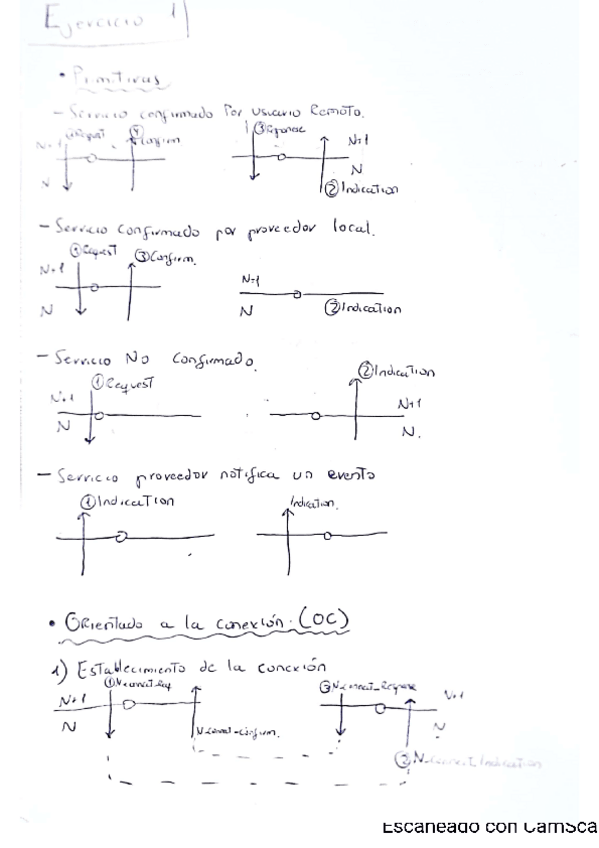 Ejercicio 1)
• Primitivas
- Servicio confirmado por usuario Remoto.
①Request ④Confirm ③Response N+1
N+1
N N
②Indication
- Servicio confirmado por proveedor local.
①Request ③Confirm.
N+1 N+1
N N ②Indication
- Servicio No confirmado.
①Request ②Indication
N+1 N+1
N N.
- Servicio proveedor notifica un evento
①Indication Indication.
• Orientado a la conexión. (OC)
1) Establecimiento de la conexión
①N-connect_Req ③N-connect_Response N+1
N+1
N N-connect-confirm. N
②N-connect_Indication
Escaneado con CamSca